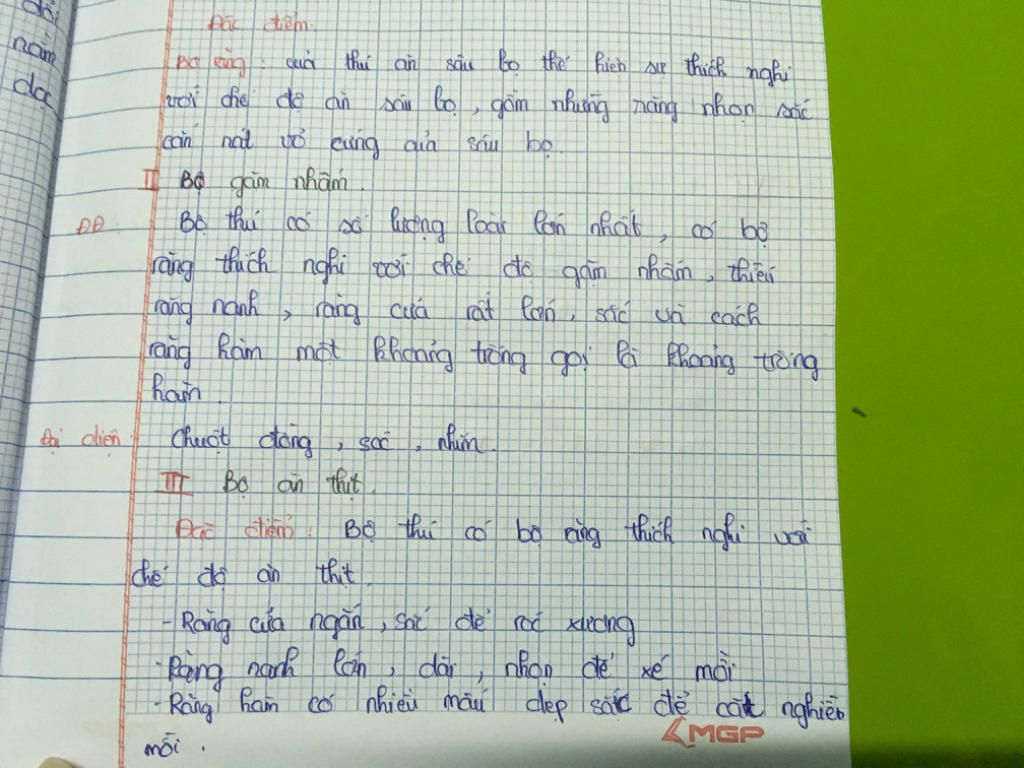 dối
nằm
dọc
Đặc điểm.
Bộ răng: của thú ăn sâu bọ thể hiện sự thích nghi
với chế độ ăn sâu bọ, gồm những răng nhọn sắc
cắn nát vỏ cứng của sâu bọ.
II Bộ gặm nhấm.
ĐĐ: Bộ thú có số lượng loài lớn nhất, có bộ
răng thích nghi với chế độ gặm nhấm, thiếu
răng nanh, răng cửa rất lớn, sắc và cách
răng hàm một khoảng trống gọi là khoảng trống
hàm.
Đại diện: chuột đồng, sóc, nhím.
III Bộ ăn thịt.
Đặc điểm: Bộ thú có bộ răng thích nghi với
chế độ ăn thịt
- Răng cửa ngắn, sắc để róc xương
- Răng nanh lớn, dài, nhọn để xé mồi
- Răng hàm có nhiều mấu dẹp sắc để cắt nghiền
mồi.
MGP